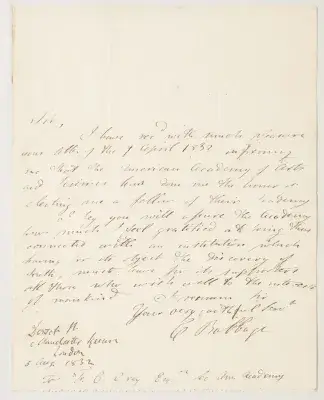 Sir,
I have rec'd with much pleasure
your letter of the 9 April 1832 informing
me that the American Academy of Arts
and Sciences had done me the honor of
electing me a fellow of their Academy
I beg you will assure the Academy
how much I feel gratified at being thus
connected with an institution which
having as its object the discovery of
truth, must have for its supporters
all those who wish well to the interests
of mankind
I remain Sir
Your very faithful Serv^t
C Babbage
Dorset St
Manchester Square
London
5 Aug 1832
To Esq^re Academy